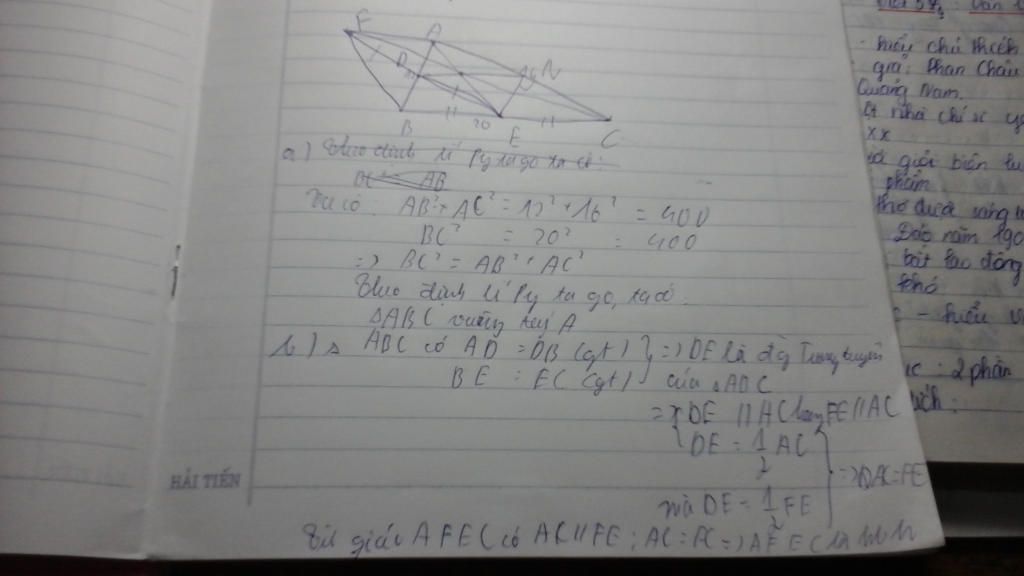 F
A
D
N
B
20
E
C
a) Theo định lí Py ta go ta có:
Ta có: AB² + AC² = 12² + 16² = 400
BC² = 20² = 400
=> BC² = AB² + AC²
Theo định lí Py ta go, ta có
△ABC vuông tại A
b) △ ABC có AD = DB (gt) } => DE là đg Trung tuyến
BE = EC (gt) của △ABC
=> { DE // AC hay FE // AC
DE = 1/2 AC
mà DE = 1/2 FE } => AC = FE
Tứ giác AFEC có AC // FE ; AC = FC => AFEC là hbh
HẢI TIẾN
- hiểu chú thích
giả: Phan Châu
Quảng Nam.
nhà chí sĩ
xx
giới biên
phẩm
Đảo năm 190
bắt lao động
khó
- hiểu
: 2 phần